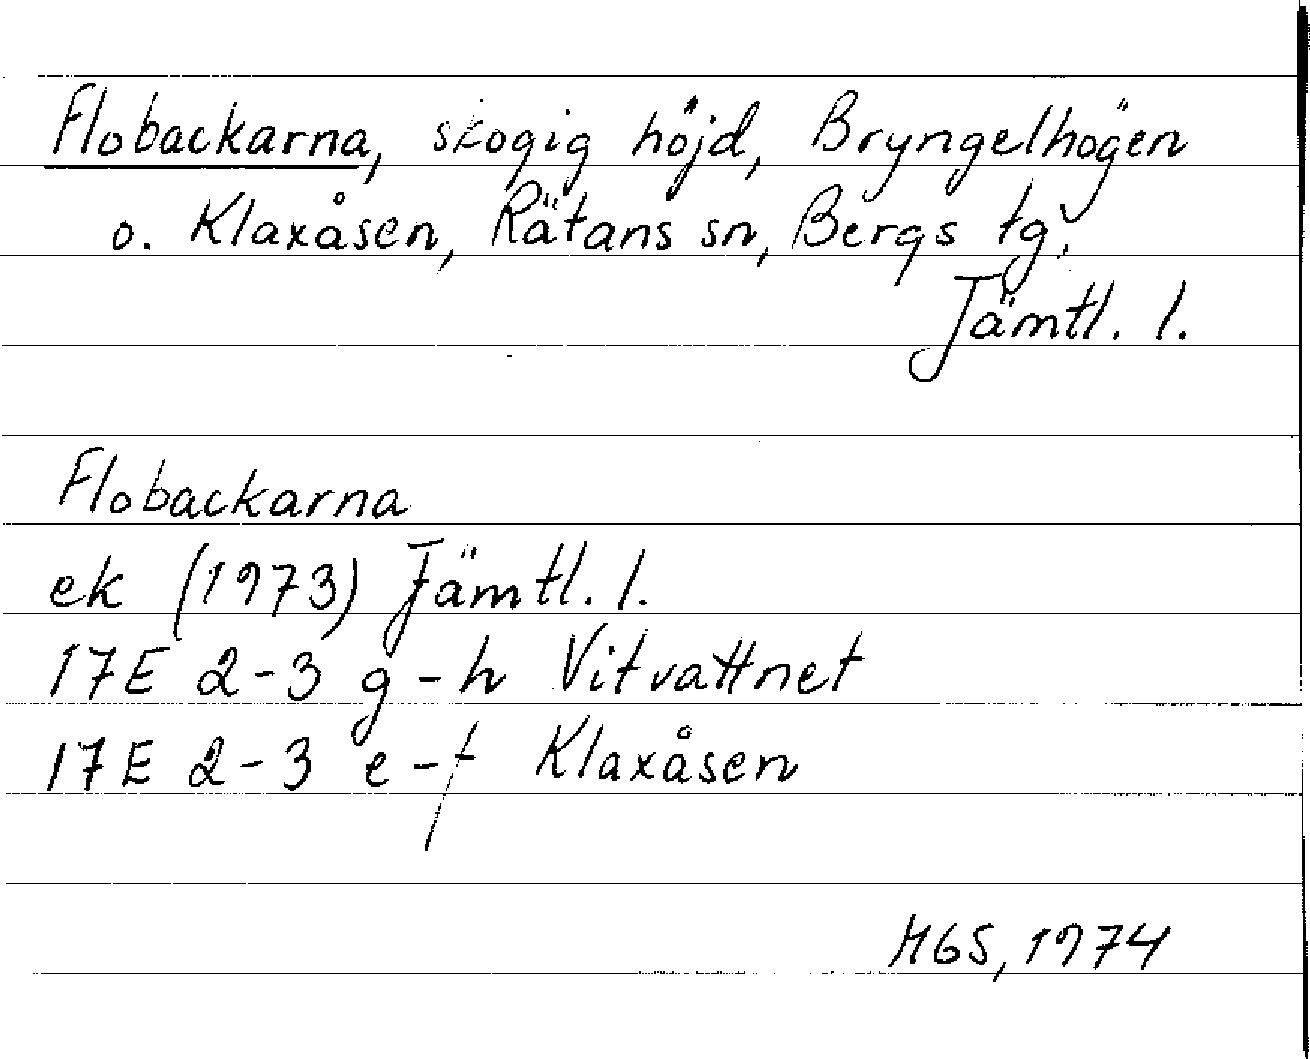 Flobackarna, skogig höjd, Bryngelhögen
o. Klaxåsen, Rätans sn, Bergs tg,
Jämtl. l.
Flobackarna
ek (1973) Jämtl. l.
17E 2-3 g-h Vitvattnet
17E 2-3 e-f Klaxåsen
MGS, 1974